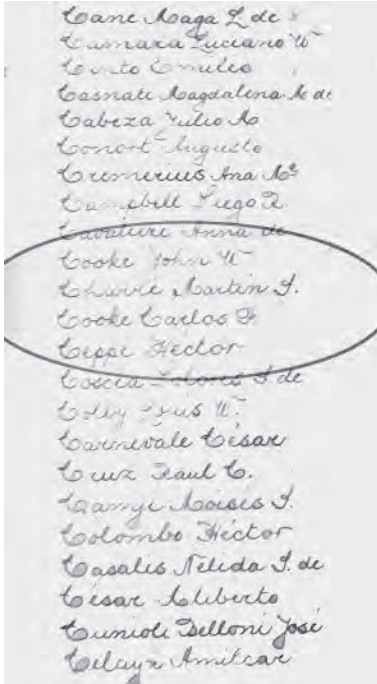 Cané Maga L. de
Camara Luciano W
Cinto Emilio
Casnati Magdalena M. de
Cabeza Julio A
Conort Augusto
Cremerius Ana Mª
Campbell Diego R.
Cavalieri Anna de
Cooke John W
Martin S.
Cooke Carlos
Ceppi Hector
Coscia Dolores S. de
Luis W.
Carnevale César
Cruz Raul C.
Moisés S.
Colombo Héctor
Casalis Nélida S. de
César Aliberto
Cunioli Delloni José
Celaya Amilcar